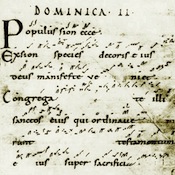 DOMINICA · II
Populus sion ecce
Ex sion species decoris e ius
deus manifeste ve niet
Congrega te illi
sanctos eius qui ordinave
runt testamentum
e ius super sacrifici